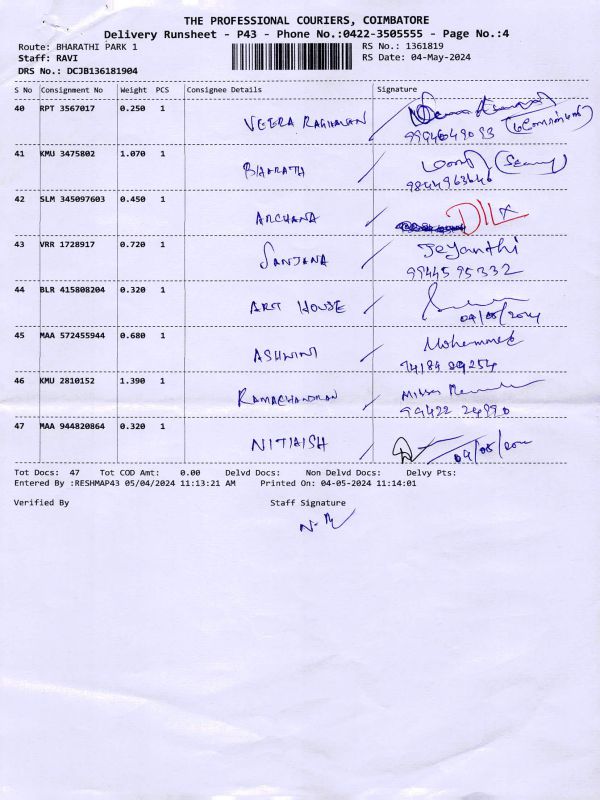 THE PROFESSIONAL COURIERS, COIMBATORE
Delivery Runsheet - P43 - Phone No.:0422-3505555 - Page No.:4
Route: BHARATHI PARK 1 RS No.: 1361819
Staff: RAVI RS Date: 04-May-2024
DRS No.: DCJB136181904
S No Consignment No Weight PCS Consignee Details Signature
40 RPT 3567017 0.250 1 VEERA RAGHAVAN
41 KMU 3475802 1.070 1 BHARATH
9844963646
42 SLM 345097603 0.450 1 ARCHANA
43 VRR 1728917 0.720 1 SANJANA Jeyanthi
9944595332
44 BLR 415808204 0.320 1 ART HOUSE
04/05/2024
45 MAA 572455944 0.680 1 ASHWINI Mohammed
46 KMU 2810152 1.390 1 RAMACHANDRAN
99422 24990
47 MAA 944820864 0.320 1 NITHISH
04/05/202
Tot Docs: 47 Tot COD Amt: 0.00 Delvd Docs: Non Delvd Docs: Delvy Pts:
Entered By :RESHMAP43 05/04/2024 11:13:21 AM Printed On: 04-05-2024 11:14:01
Verified By Staff Signature